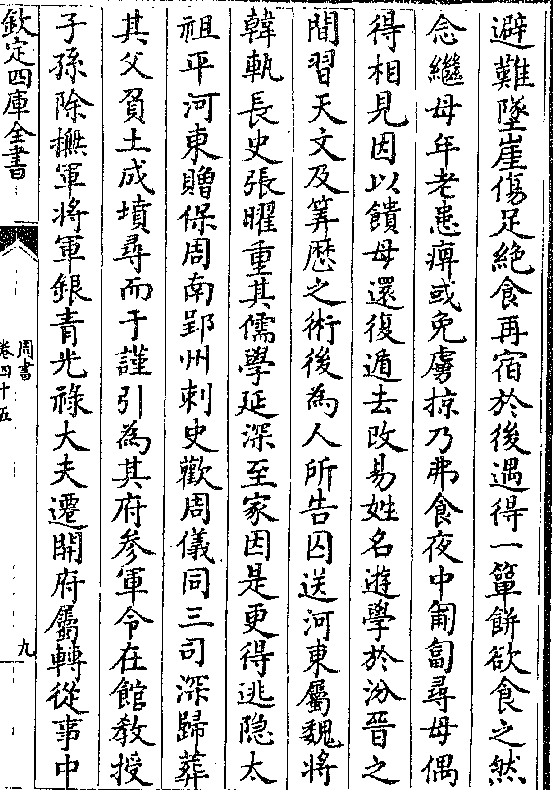 避難墜崖傷足絶食再宿於後遇得一簞餅欲食之然
念繼母年老患痺或免虜掠乃弗食夜中匍匐尋母偶
得相見因以饋母還復遁去改易姓名遊學於汾晉之
間習天文及筭歴之術後為人所告囚送河東屬魏將
韓軌長史張曜重其儒學延深至家因是更得逃隐太
祖平河東贈保周南郢州刺史歡周儀同三司深歸葬
其父負土成墳尋而于謹引為其府參軍令在館敎授
子孫除撫軍将軍銀青光祿大夫遷開府屬轉從事中
欽定四庫全書
周書
卷四十五
九